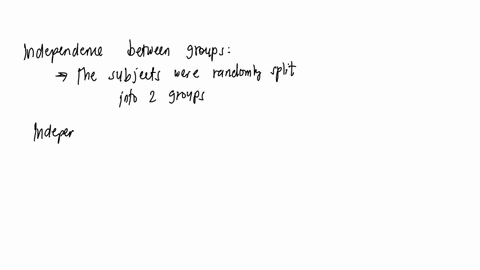 Independence between groups:
⇒ The subjects were randomly split
into 2 groups
Indepen